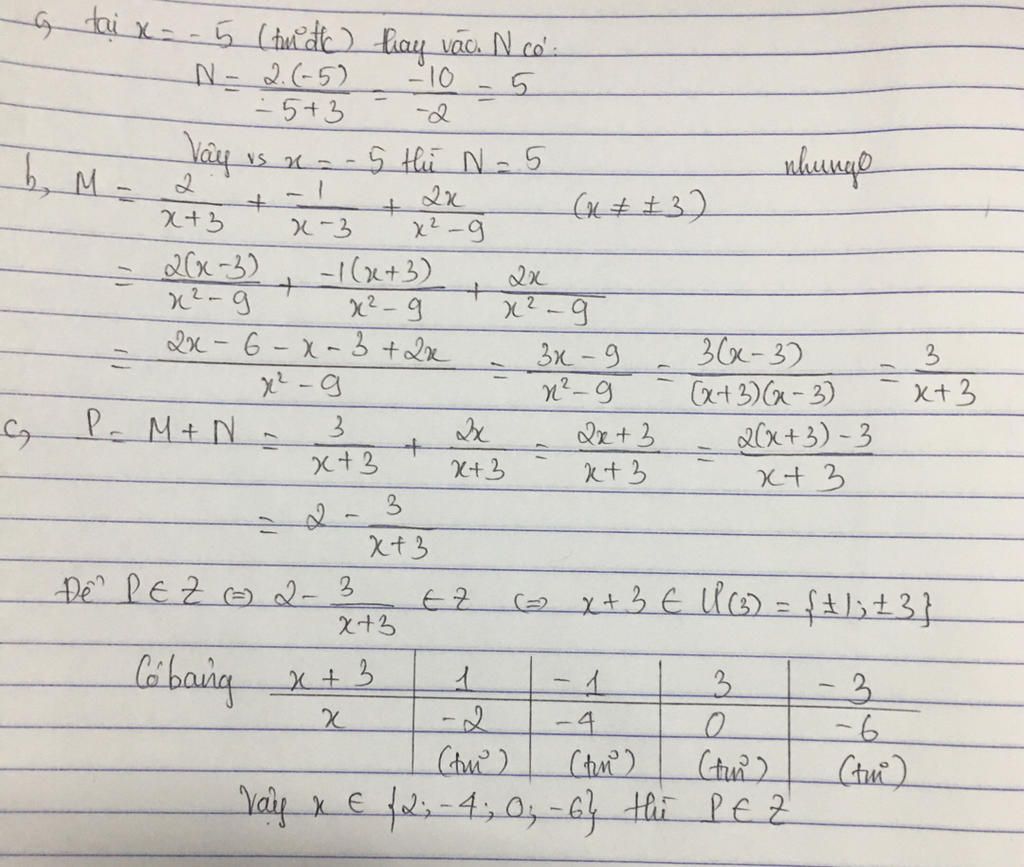 a, tại x = -5 (tmđk) thay vào N có:
N = 2.(-5)/-5+3 = -10/-2 = 5
Vậy vs x = -5 thì N = 5 nhungo
b, M = 2/x+3 + -1/x-3 + 2x/x²-9 (x ≠ ±3)
= 2(x-3)/x²-9 + -1(x+3)/x²-9 + 2x/x²-9
= 2x - 6 - x - 3 + 2x/x²-9 = 3x-9/x²-9 = 3(x-3)/(x+3)(x-3) = 3/x+3
c, P = M + N = 3/x+3 + 2x/x+3 = 2x+3/x+3 = 2(x+3)-3/x+3
= 2 - 3/x+3
Để P ∈ Z ⇔ 2 - 3/x+3 ∈ Z ⇔ x+3 ∈ Ư(3) = {±1; ±3}
Có bảng x + 3 1 -1 3 -3
x -2 -4 0 -6
(tm) (tm) (tm) (tm)
Vậy x ∈ {2; -4; 0; -6} thì P ∈ Z